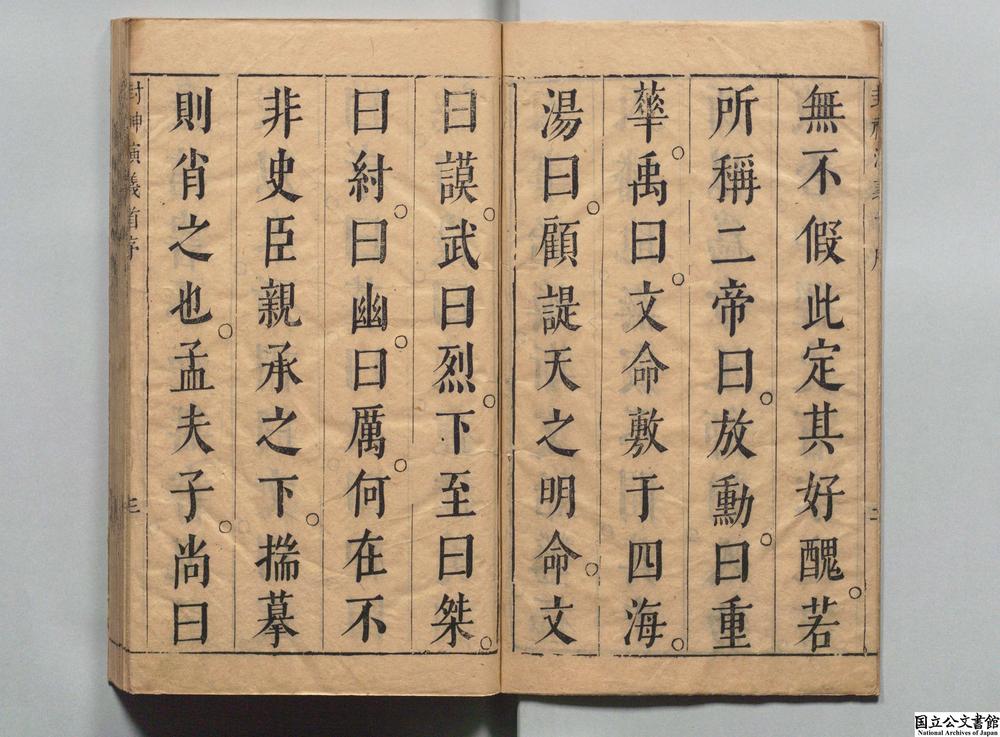 無不假此定其好醜。若
所稱二帝曰。放勳。曰重
華。禹曰。文命敷于四海。
湯曰。顧諟天之明命。文
曰謨。武曰烈。下至曰桀。
曰紂。曰幽。曰厲。何在不
非史臣親承之下。揣摹
則肖之也。孟夫子。尚曰
封神演義首序
三
国立公文書館
National Archives of Japan